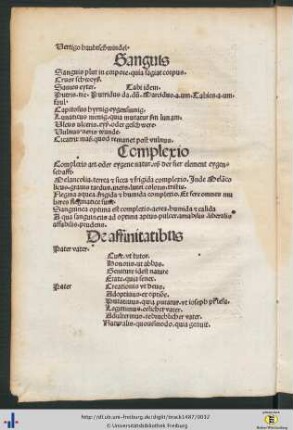 Vertigo haubtschwindel·
Sanguis
Sanguis plut in corpore· quia fugiat corpus·
Cruor schweyß·
Sanies eyter· Tabi idem·
Putris·ne· Putridus·da·dũ· Marcidus·a·um·Tabidus·a·um·
faul·
Capitosus hyrnig
Lunaticus menig· quia mutatur
Ulcus ulceris·eyß·oder geschwere·
Vulnus neris wunde·
Cicatrix masz·quod remanet post vulnus·
Complexio
Complexio art·oder eygene natur·eß der fier element eygen
schafft
Melancolia·terra ꝛ sicca ꝛ frigida complexio· Inde Melãco
licus·grauis tardus·
Flegma aqua frigida ꝛ humida complexio· Et fere omnes mu
lieres flecmatice sunt·
Sanguinea optima est complexio·aeris·humida ꝛ calida
A qua sanguineus ad optima aptus·pulcer·amabilis·liberalis
affabilis·prudens·
De affinitatibus
Pater vater·
Cure·vt tutor·
Honoris·vt abbas·
Geniture idest nature
Etate·quia senex·
Pater Creationis vt deus·
Adoptiuus·
Putatiuus·quia putatur·vt ioseph
Legitimus·eelicher vater·
Adulterinus·eebruchlicher vater·
Naturalis·quomodo·quia genuit·
http://dl.ub.uni-freiburg.de/diglit/inck1487/0037
© Universitätsbibliothek Freiburg